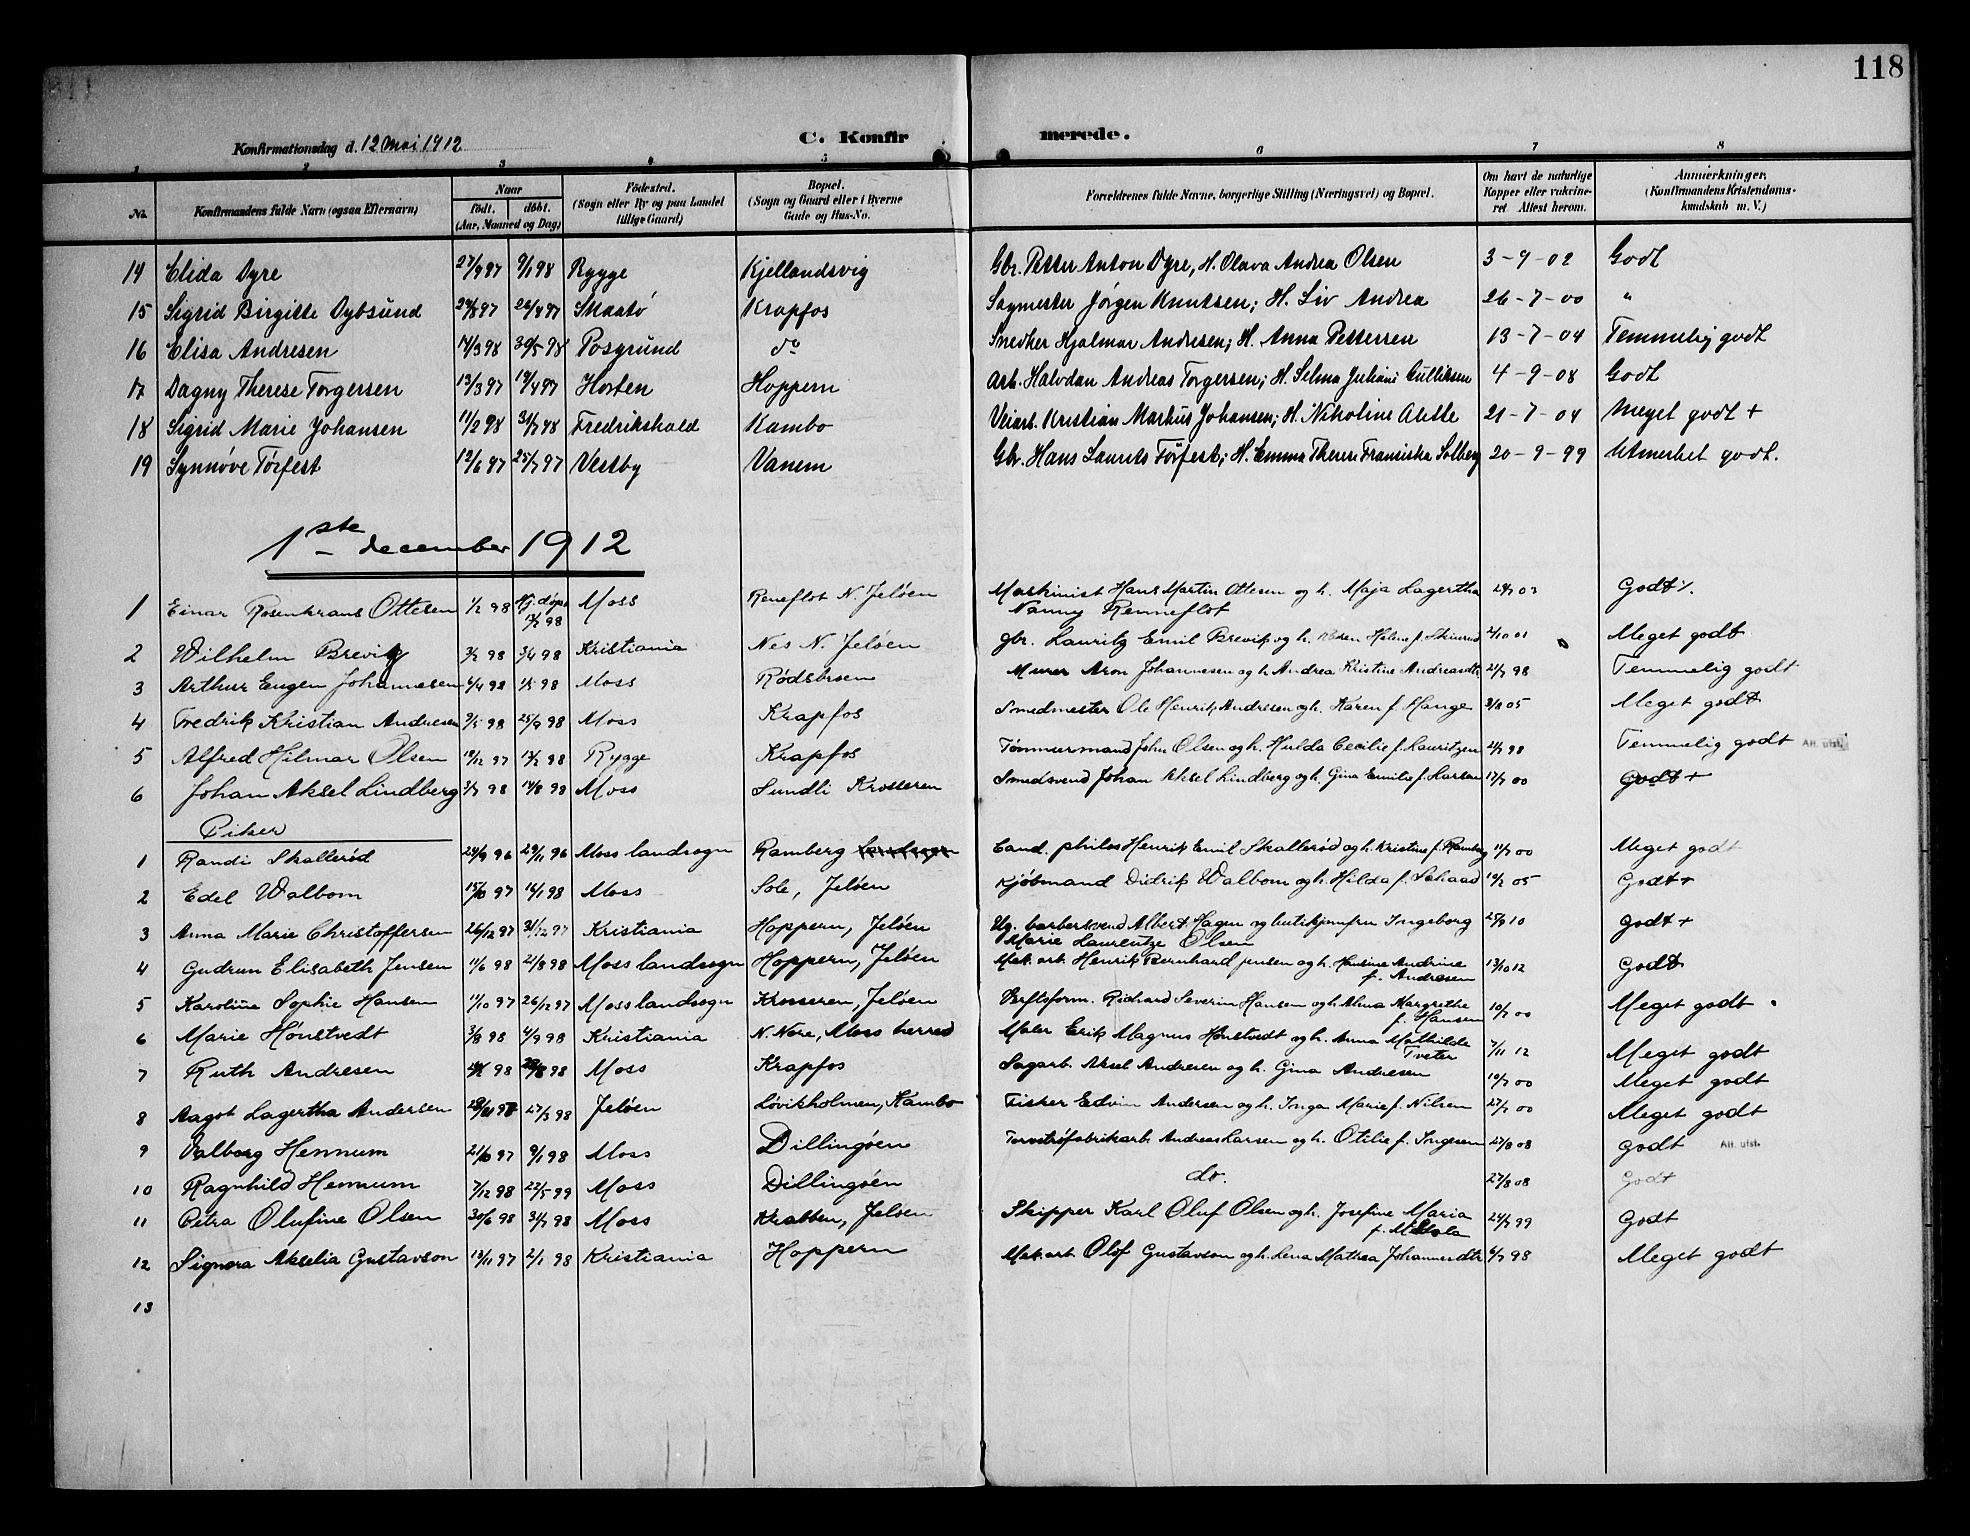 118
Konfirmationsdag d. 12 Mai 1912
C. Konfirmerede.
1 2 3 4 5 6 7 8
No. Konfirmandens fulde Navn (ogsaa Efternavn) Naar født. døbt. (Aar, Maaned og Dag) Fødested. (Sogn eller By og paa Landet tillige Gaard) Bopæl. (Sogn og Gaard eller i Byerne Gade og Hus-No. Forældrenes fulde Navne, borgerlige Stilling (Næringsvei) og Bopæl. Om havt de naturlige Kopper eller vakcineret. Attest herom. Anmærkninger. (Konfirmandens Kristendomskundskab m. V.)
14 Elida Dyre 27/9 97 9/1 98 Rygge Kjellandsvig Gbr. Petter Anton Dyre, H. Olava Andrea Olsen 3-9-02 Godt
15 Sigrid Birgitte Dybsund 97 97 Skaatø Krapfos Sagmester Jörgen Knutsen; H. Siv Andrea 26-7-00 "
16 Elisa Andresen 14/3 98 30/5 98 Posgrund do Snedker Hjalmar Andresen; H. Anna Pettersen 13-7-04 Temmelig godt
17 Dagny Therese Torgersen 13/3 97 19/4 97 Horten Hoppern Arb. Halvdan Andreas Torgersen; H. Selma Juliani Gulliksen 4-9-08 Godt
18 Sigrid Marie Johansen 11/2 98 31/7 98 Fredrikshald Kambo Veiarb. Kristian Markus Johansen; H. Nikoline Alette 21-7-04 Meget godt +
19 Synnøve Tørfest 12/6 97 25/7 97 Vestby Vanem Gbr. Hans Laurits Tørfest; H. Emma Therese Franciska Solberg 20-9-99 Utmerket godt.
1ste december 1912
1 Einar Rosenkrans Ottesen 1/2 98 Hj. døpt 98 Moss Reneflot N. Jeløen Maskinist Hans Martin Ottesen og h. Maja Lagertha 03 Godt
Nanny Renneflot
2 Wilhelm Brevig 3/2 98 3/4 98 Kristiania Nes N. Jeløen gbr. Lauritz Emil Brevik og h. Helene f. 2/10 01 Meget godt
3 Arthur Eugen Johannesen 6/4 98 1/5 98 Moss Rødsbrsen Murer Aron Johannesen og h. Andrea Kristine Andreasdtr 21/7 98 Temmelig godt
4 Fredrik Kristian Andresen 98 25/9 98 Moss Krapfos Smedmester Ole Henrik Andresen og h. Karen f. Hange 05 Meget godt
5 Alfred Hilmar Olsen 19/12 97 13/2 98 Rygge Krapfos Tømmermand John Olsen og h. Hulda Cecilie f. Lauritzen 98 Temmelig godt Att. utst.
6 Johan Aksel Lindberg 3/7 98 14/8 98 Moss Sundli Krosseren Smedsvend Johan Aksel Lindberg og h. Gina Emilie f. Larsen 17/7 00 Godt +
Piker
1 Randi Skallerød 24/9 96 29/11 96 Moss landsogn Ramberg Cand. philos Henrik Emil Skallerød og h. Kristine f. Ramberg 11/7 00 Meget godt
2 Edel Walbom 15/10 97 16/1 98 Moss Sole, Jeløen Kjøbmand Didrik Walbom og h. Hilda f. Schaad 19/2 05 Godt +
3 Anna Marie Christoffersen 26/12 97 31/12 97 Kristiania Hoppern, Jeløen Ug. barbersvend Albert Hagen og butikjomfru Ingeborg 25/9 10 Godt +
Marie Laurentze Olsen
4 Gudrun Elisabeth Jensen 11/6 98 21/8 98 Moss landsogn Hoppern, Jeløen Mek. arb. Henrik Bernhard Jensen og h. Hansine Andrine 13/10 12 Godt
f. Andresen
5 Karoline Sophie Hansen 11/10 97 26/12 97 Moss landsogn Krosseren, Jeløen Verftsform. Richard Severin Hansen og h. Alma Margrethe 10/7 00 Meget godt
f. Hansen
6 Marie Hønstvedt 3/8 98 4/9 98 Kristiania N. Nore, Moss herred Maler Erik Magnus Hønstvedt og h. Anna Mathilde 7/11 12 Meget godt
Tveter
7 Ruth Andresen 98 98 Moss Krapfos Sagarb. Aksel Andresen og h. Gina Andresen 19/7 00 Meget godt
8 Aagot Lagertha Andersen 97 27/3 98 Jeløen Løvikholmen, Kambo Fisker Edvin Andersen og h. Inga Marie f. Nilsen 27/7 00 Meget godt
9 Valborg Hennum 21/10 97 9/1 98 Moss Dillingøen Torvstrøfabrikarb. Andreas Larsen og h. Otilie f. Ingesen 27/8 08 Godt Att. utst.
10 Ragnhild Hennum 7/12 98 22/5 99 Moss Dillingøen do. 27/8 08 Godt
11 Petra Olufine Olsen 30/6 98 31/7 98 Moss Krabben, Jeløen Skipper Karl Oluf Olsen og h. Josefine Maria 24/7 99 Godt
12 Signora Akselia Gustavson 13/11 97 2/1 98 Kristiania Hoppern Mek. arb Olof Gustavson og h. Lena Mathea Johannesdtr 6/7 98 Meget godt
13